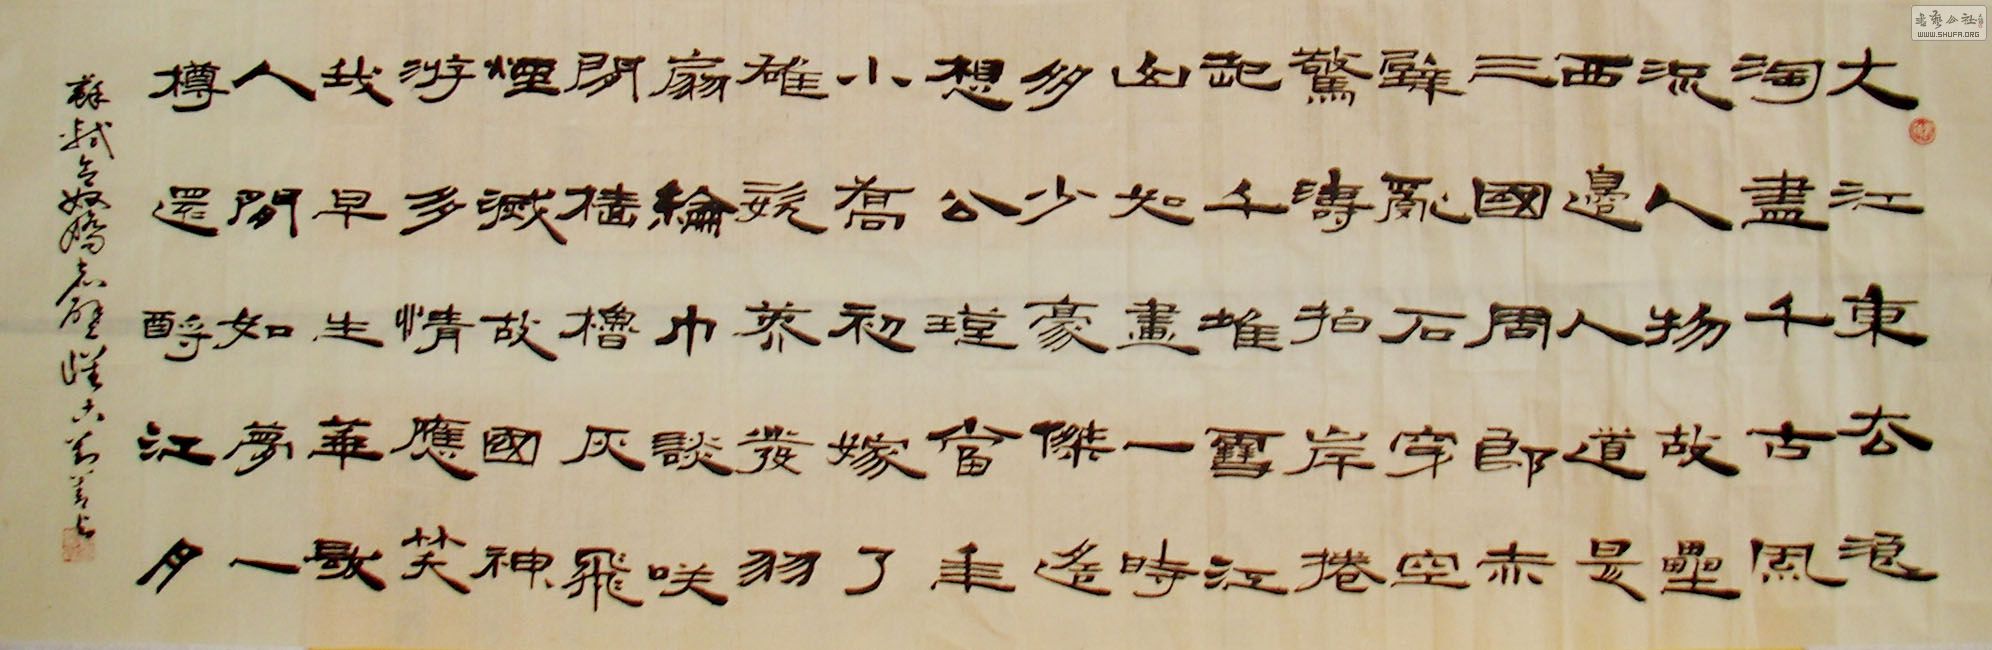 大江東去浪
淘盡千古風
流人物故壘
西邊人道是
三國周郎赤
壁亂石穿空
驚濤拍岸捲
起千堆雪江
山如畫一時
多少豪傑遙
想公瑾當年
小喬初嫁了
雄姿英發羽
扇綸巾談咲
間檣櫓灰飛
煙滅故國神
游多情應笑
我早生華
人間如夢一
樽還酹江月
蘇軾念奴嬌赤壁懷古
書藝公社
WWW.SHUFA.ORG